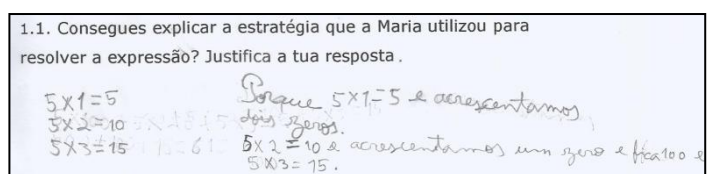 1.1. Consegues explicar a estratégia que a Maria utilizou para
resolver a expressão? Justifica a tua resposta.
5×1=5
5×2=10
5×3=15
Porque 5×1=5 e acrescentamos
dois zeros.
5×2=10 e acrescentamos um zero e fica 100 e
5×3=15.